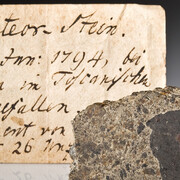 teor-Stein.
Jun: 1794, bei
in Toscanischen
gefallen
ent von
26 Unz